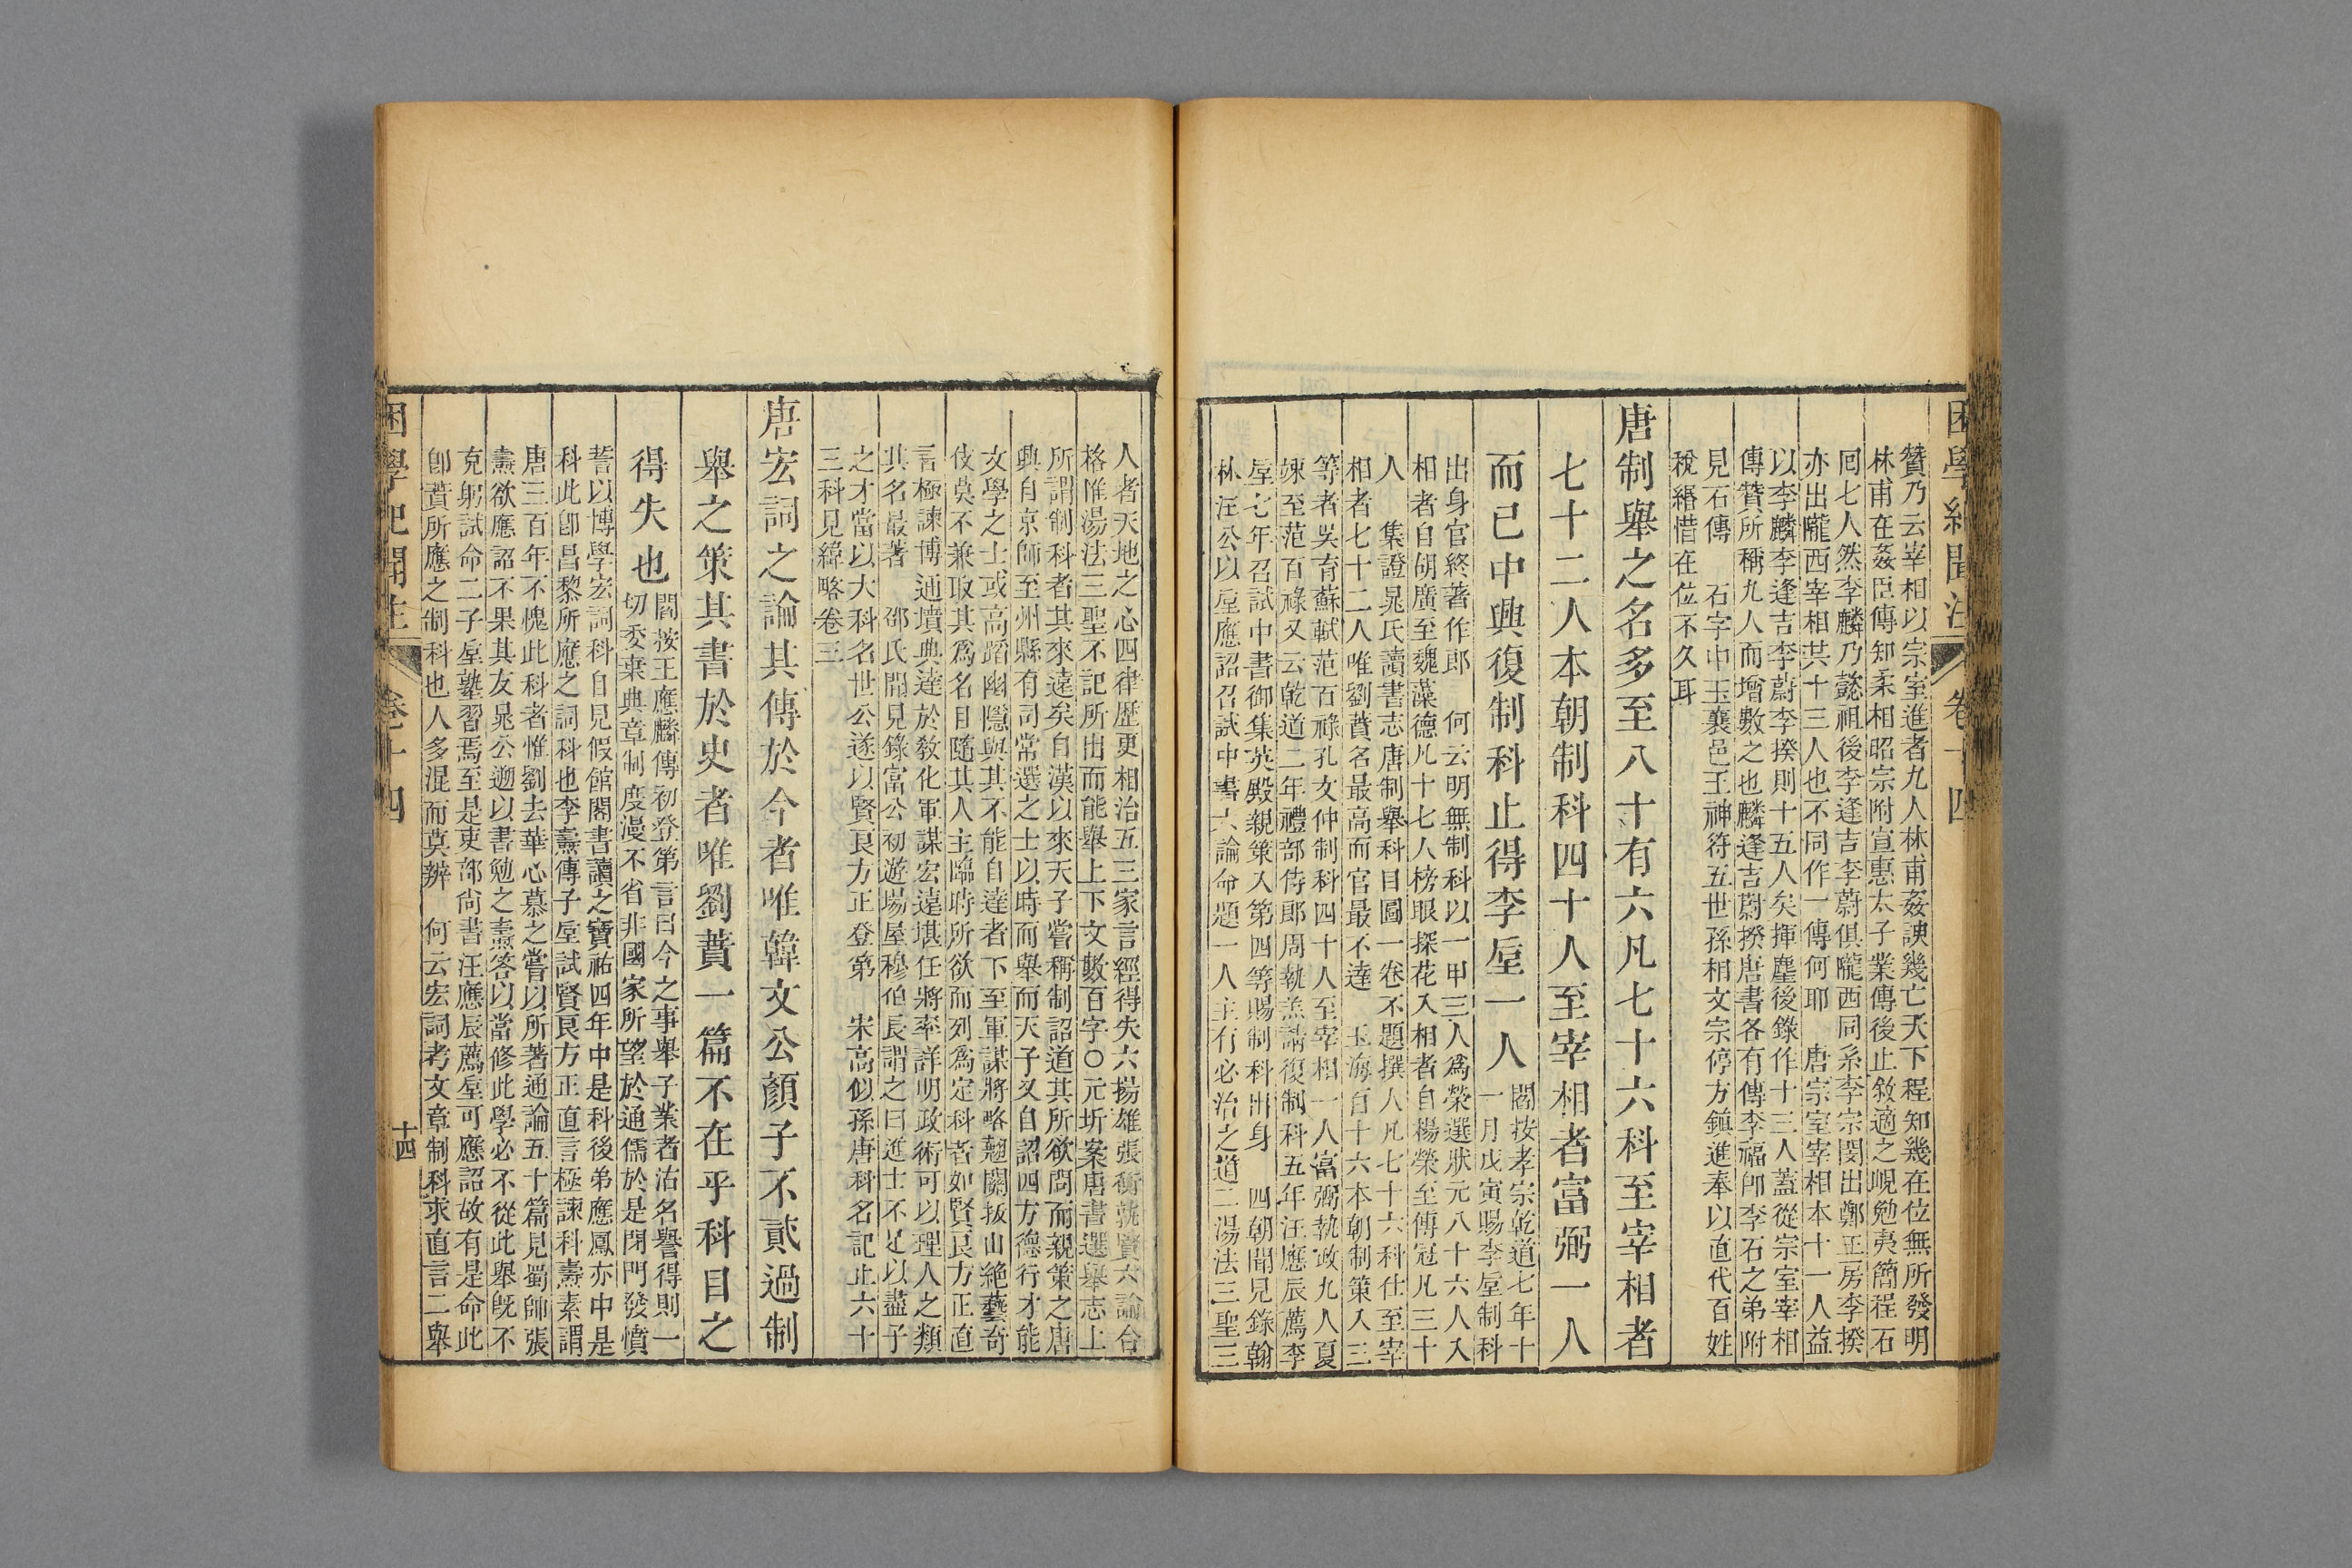 困學紀聞注 卷十四
贊乃云宰相以宗室進者九人林甫姦諛幾亡天下程知幾在位無所發明
林甫在姦臣傳知柔相昭宗附宣惠太子業傳後止敘適之峴勉夷簡程石
囘七人然李麟乃懿祖後李逢吉李蔚俱隴西同系李宗閔出鄭王房李揆
亦出隴西宰相共十三人也不同作一傳何耶 唐宗室宰相本十一人益
以李麟李逢吉李蔚李揆則十五人矣揮塵後錄作十三人蓋從宗室宰相
傳贊所稱九人而增數之也麟逢吉蔚揆唐書各有傳李福卽李石之弟附
見石傳 石字中玉襄邑王神符五世孫相文宗停方鎮進奉以直代百姓
稅緡惜在位不久耳
唐制舉之名多至八十有六凡七十六科至宰相者
七十二人本朝制科四十人至宰相者富弼一人
而已中興復制科止得李垕一人
閻按孝宗乾道七年十
一月戊寅賜李垕制科
出身官終著作郎 何云明無制科以一甲三人爲榮選狀元八十六人入
相者自胡廣至魏藻德凡十七人榜眼探花入相者自楊榮至傅冠凡三十
人 集證晁氏讀書志唐制舉科目圖一卷不題撰人凡七十六科仕至宰
相者七十二人唯劉蕡名最高而官最不達 玉海百十六本朝制策入三
等者吳育蘇軾范百祿孔文仲制科四十人至宰相一人富弼執政九人夏
竦至范百祿又云乾道二年禮部侍郎周執羔請復制科五年汪應辰薦李
垕七年召試中書御集英殿親策入第四等賜制科出身 四朝聞見錄翰
林汪公以垕應詔召試中書六論命題一人主有必治之道二湯法三聖三
人者天地之心四律歷更相治五三家言經得失六揚雄張衡孰賢六論合
格惟湯法三聖不記所出而能舉上下文數百字○元圻案唐書選舉志上
所謂制科者其來遠矣自漢以來天子嘗稱制詔道其所欲問而親策之唐
興自京師至州縣有司常選之士以時而舉而天子又自詔四方德行才能
文學之士或高蹈幽隱與其不能自達者下至軍謀將略翹關拔山絕藝奇
伎莫不兼取其爲名目隨其人主臨時所欲而列爲定科者如賢良方正直
言極諫博通墳典達於教化軍謀宏遠堪任將率詳明政術可以理人之類
其名最著 邵氏聞見錄富公初遊場屋穆伯長謂之曰進士不足以盡子
之才當以大科名世公遂以賢良方正登第 宋高似孫唐科名記止六十
三科見緯略卷三
唐宏詞之論其傳於今者唯韓文公顏子不貳過制
舉之策其書於史者唯劉蕡一篇不在乎科目之
得失也
閻按王應麟傳初登第言曰今之事舉子業者沽名譽得則一
切委棄典章制度漫不省非國家所望於通儒於是閉門發憤
誓以博學宏詞科自見假館閣書讀之寶祐四年中是科後弟應鳳亦中是
科此卽昌黎所應之詞科也李燾傳子垕試賢良方正直言極諫科燾素謂
唐三百年不愧此科者惟劉去華心慕之嘗以所著通論五十篇見蜀帥張
燾欲應詔不果其友晁公遡以書勉之燾答以當修此學必不從此舉旣不
克躬試命二子垕塾習焉至是吏部尙書汪應辰薦垕可應詔故有是命此
卽蕡所應之制科也人多混而莫辨 何云宏詞考文章制科求直言二舉
困學紀聞注 卷十四 十四